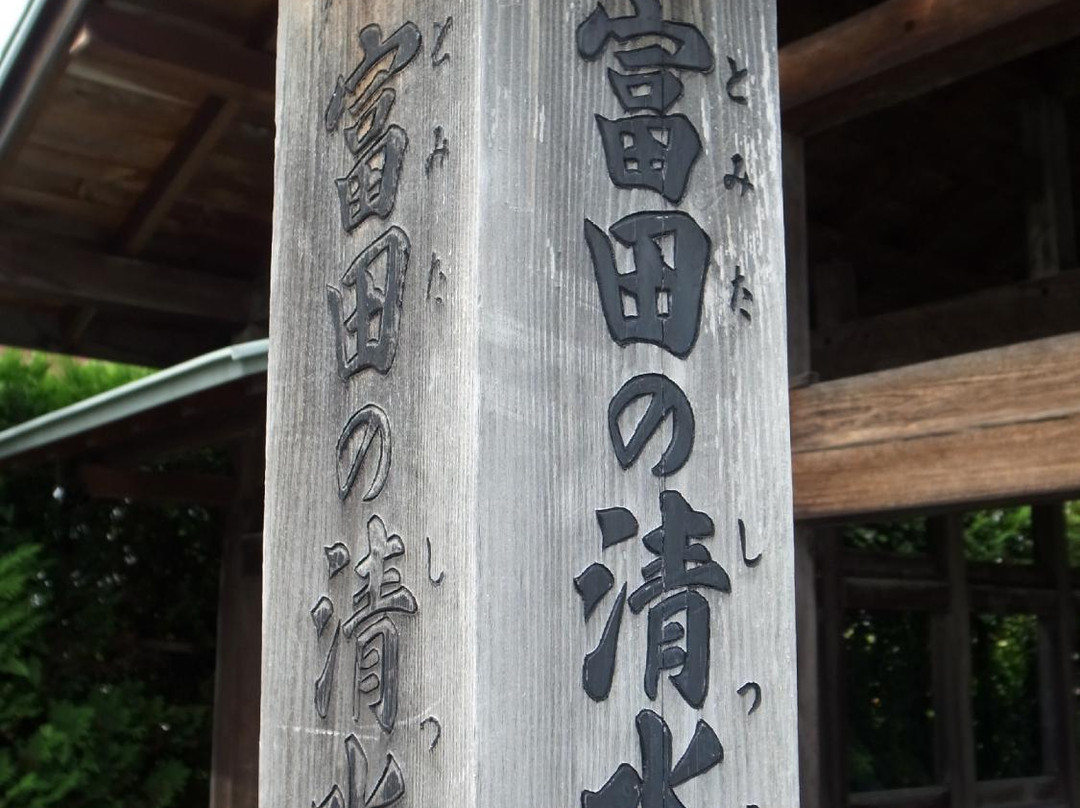 富田の清水
とみた しつ
富田の清水
とみた しつ